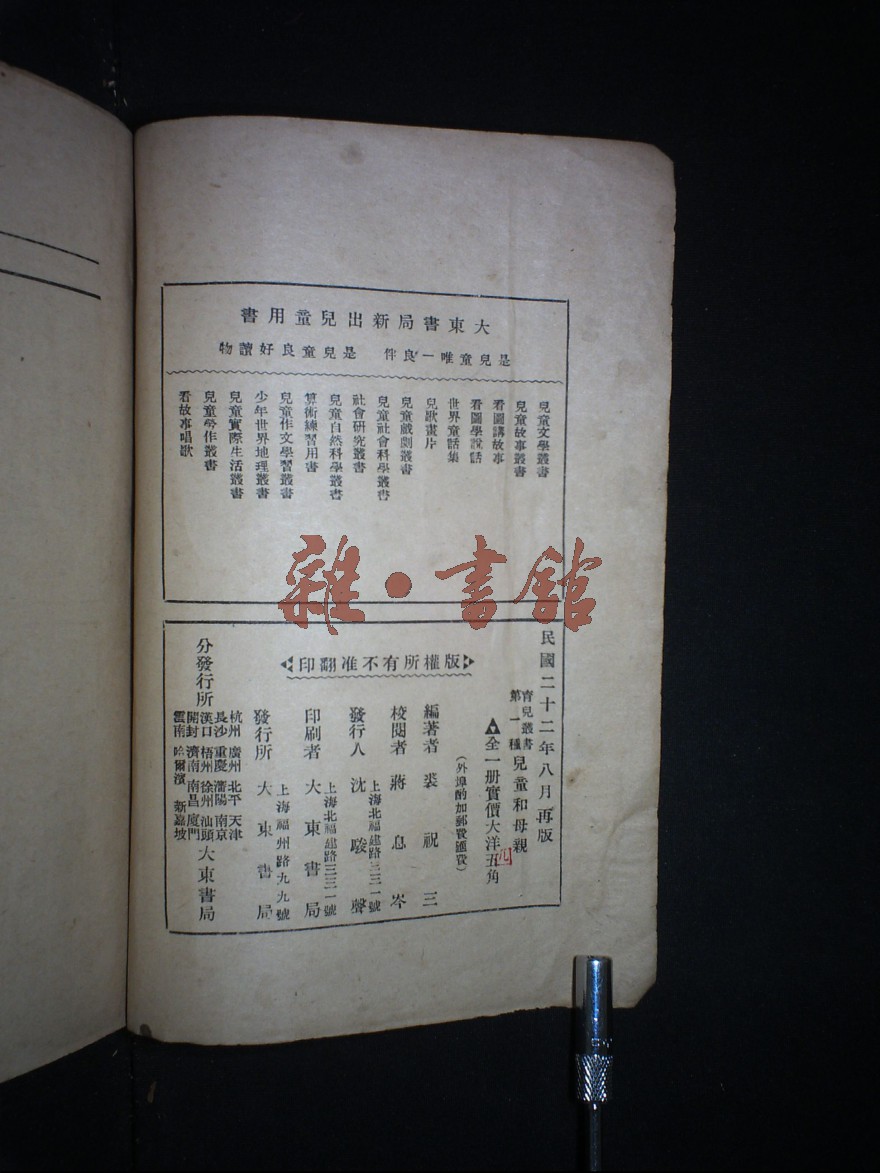 大東書局新出兒童用書
是兒童唯一良伴　是兒童良好讀物
兒童文學叢書
兒童故事叢書
看圖講故事
看圖學說話
世界童話集
兒歌畫片
兒童戲劇叢書
兒童社會科學叢書
社會研究叢書
兒童自然科學叢書
算術練習用書
兒童作文學習叢書
少年世界地理叢書
兒童實際生活叢書
兒童勞作叢書
看故事唱歌
雜·書館
民國二十二年八月再版
育兒叢書第一種 兒童和母親
全一册實價大洋五角
(外埠酌加郵費匯費)
版權所有不准翻印
編著者 裘祝三
校閱者 蔣息岑
發行人 沈駿聲
上海北福建路三三一號
印刷者 大東書局
上海北福建路三三一號
發行所 大東書局
上海福州路九九號
分發行所
杭州 廣州 北平 天津
長沙 重慶 瀋陽 南京
漢口 梧州 徐州 汕頭
開封 濟南 南昌 廈門
雲南 哈爾濱 新嘉坡
大東書局